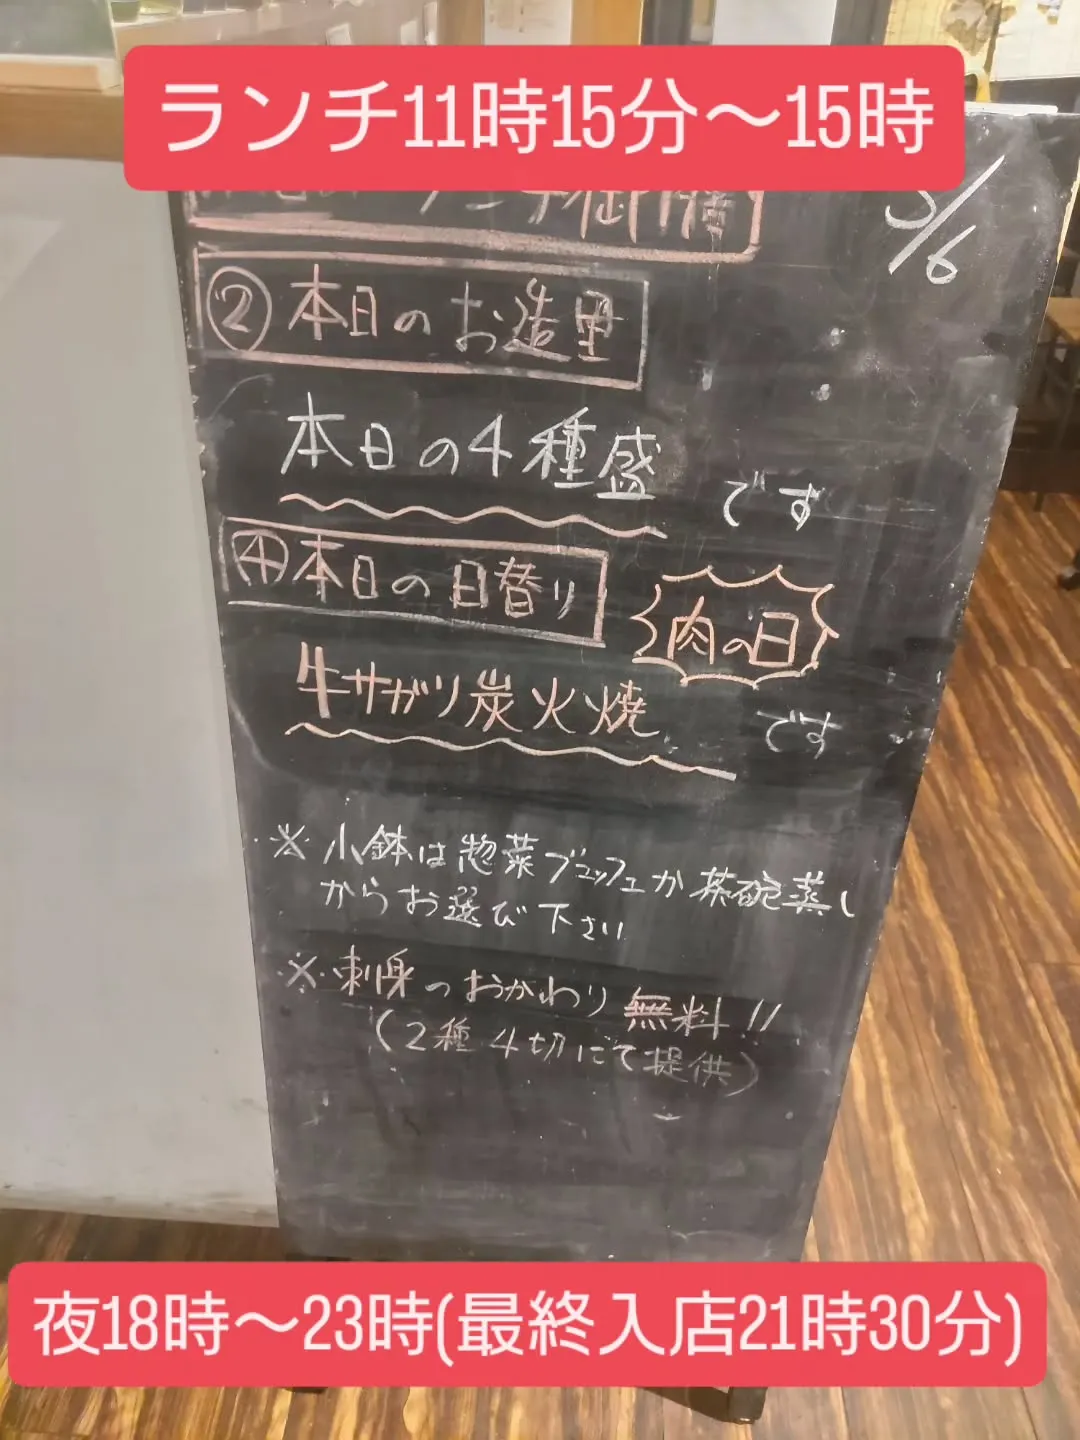 ランチ11時15分〜15時
ランチ御膳
5/6
② 本日のお造里
本日の4種盛 です
④本日の日替り
肉の日
牛サガリ炭火焼 です
※ 小鉢は惣菜ブュッフェか茶碗蒸し
からお選び下さい
※ 刺身のおかわり 無料!!
(2種 4切にて提供)
夜18時〜23時(最終入店21時30分)